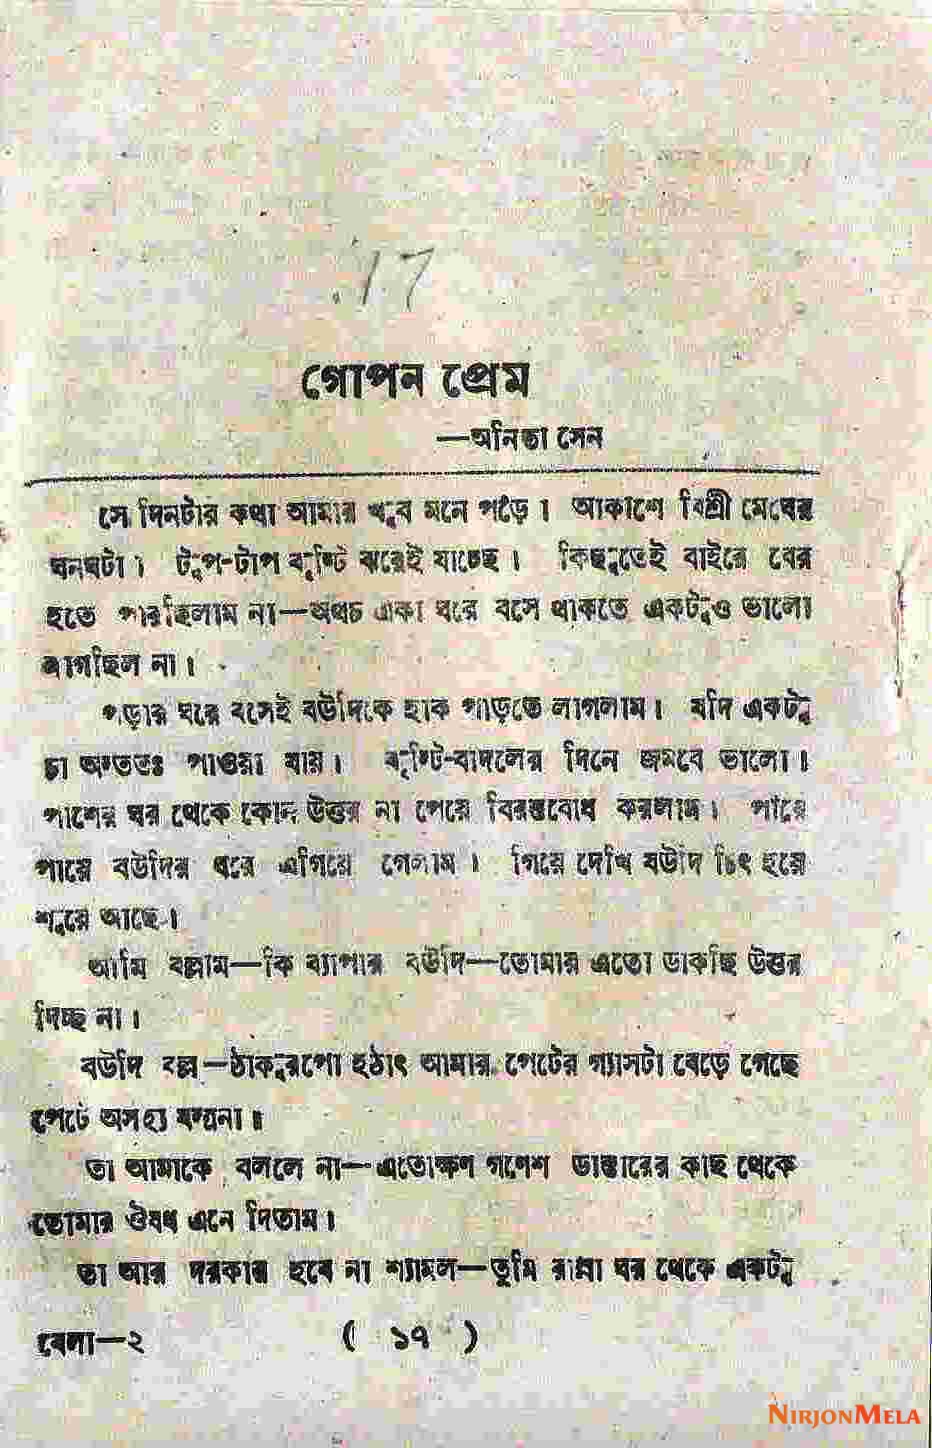 17
গোপন প্রেম
—অনিতা সেন
সে দিনটার কথা আমার খুব মনে পড়ে। আকাশে বিশ্রী মেঘের
ঘনঘটা। টুপ-টাপ বৃষ্টি ঝরেই যাচ্ছে। কিছুতেই বাইরে বের
হতে পারছিলাম না—অথচ একা ঘরে বসে থাকতে একটুও ভালো
লাগছিল না।
পড়ার ঘরে বসেই বউদিকে হাক পাড়তে লাগলাম। যদি একটু
চা অন্ততঃ পাওয়া যায়। বৃষ্টি-বাদলের দিনে জমবে ভালো।
পাশের ঘর থেকে কোন উত্তর না পেয়ে বিরক্তবোধ করলাম। পায়ে
পায়ে বউদির ঘরে এগিয়ে গেলাম। গিয়ে দেখি বউদি চিৎ হয়ে
শুয়ে আছে।
আমি বল্লাম—কি ব্যাপার বউদি—তোমায় এতো ডাকছি উত্তর
দিচ্ছ না।
বউদি বল্ল—ঠাকুরপো হঠাৎ আমার পেটের গ্যাসটা বেড়ে গেছে
পেটে অসহ্য যন্ত্রনা॥
তা আমাকে বললে না—এতোক্ষণ গণেশ ডাক্তারের কাছ থেকে
তোমার ঔষধ এনে দিতাম।
তা আর দরকার হবে না শ্যামল—তুমি রান্না ঘর থেকে একটু
বেলা—২
( ১৭ )
NIRJONMELA